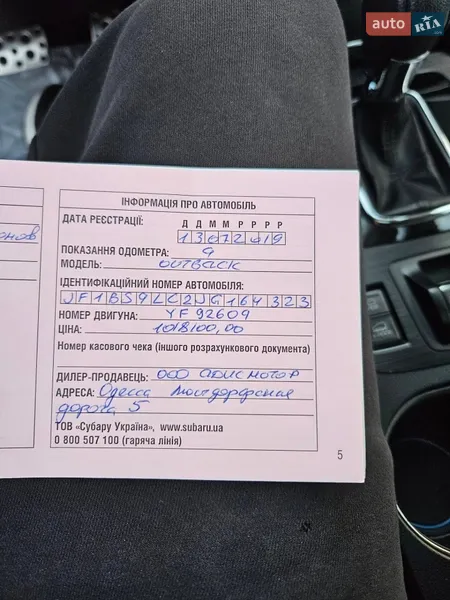 auto RIA
ІНФОРМАЦІЯ ПРО АВТОМОБІЛЬ
ДАТА РЕЄСТРАЦІЇ: Д Д М М Р Р Р Р
13072019
ПОКАЗАННЯ ОДОМЕТРА: 9
МОДЕЛЬ: OUTBACK
ІДЕНТИФІКАЦІЙНИЙ НОМЕР АВТОМОБІЛЯ:
JF1BS9LC2JG164323
НОМЕР ДВИГУНА: YF 92609
ЦІНА: 1018100,00
Номер касового чека (іншого розрахункового документа)
ДИЛЕР-ПРОДАВЕЦЬ: ООО
АДРЕСА: Одесса
дорога 5
ТОВ «Субару Україна», www.subaru.ua
0 800 507 100 (гаряча лінія)
5